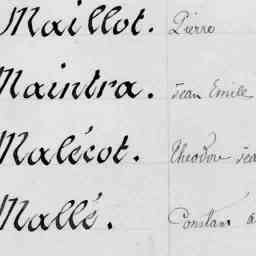 Maillot. Pierre
Maintra. Jean Emile
Malécot. Théodore Jea
Mallé. Constant